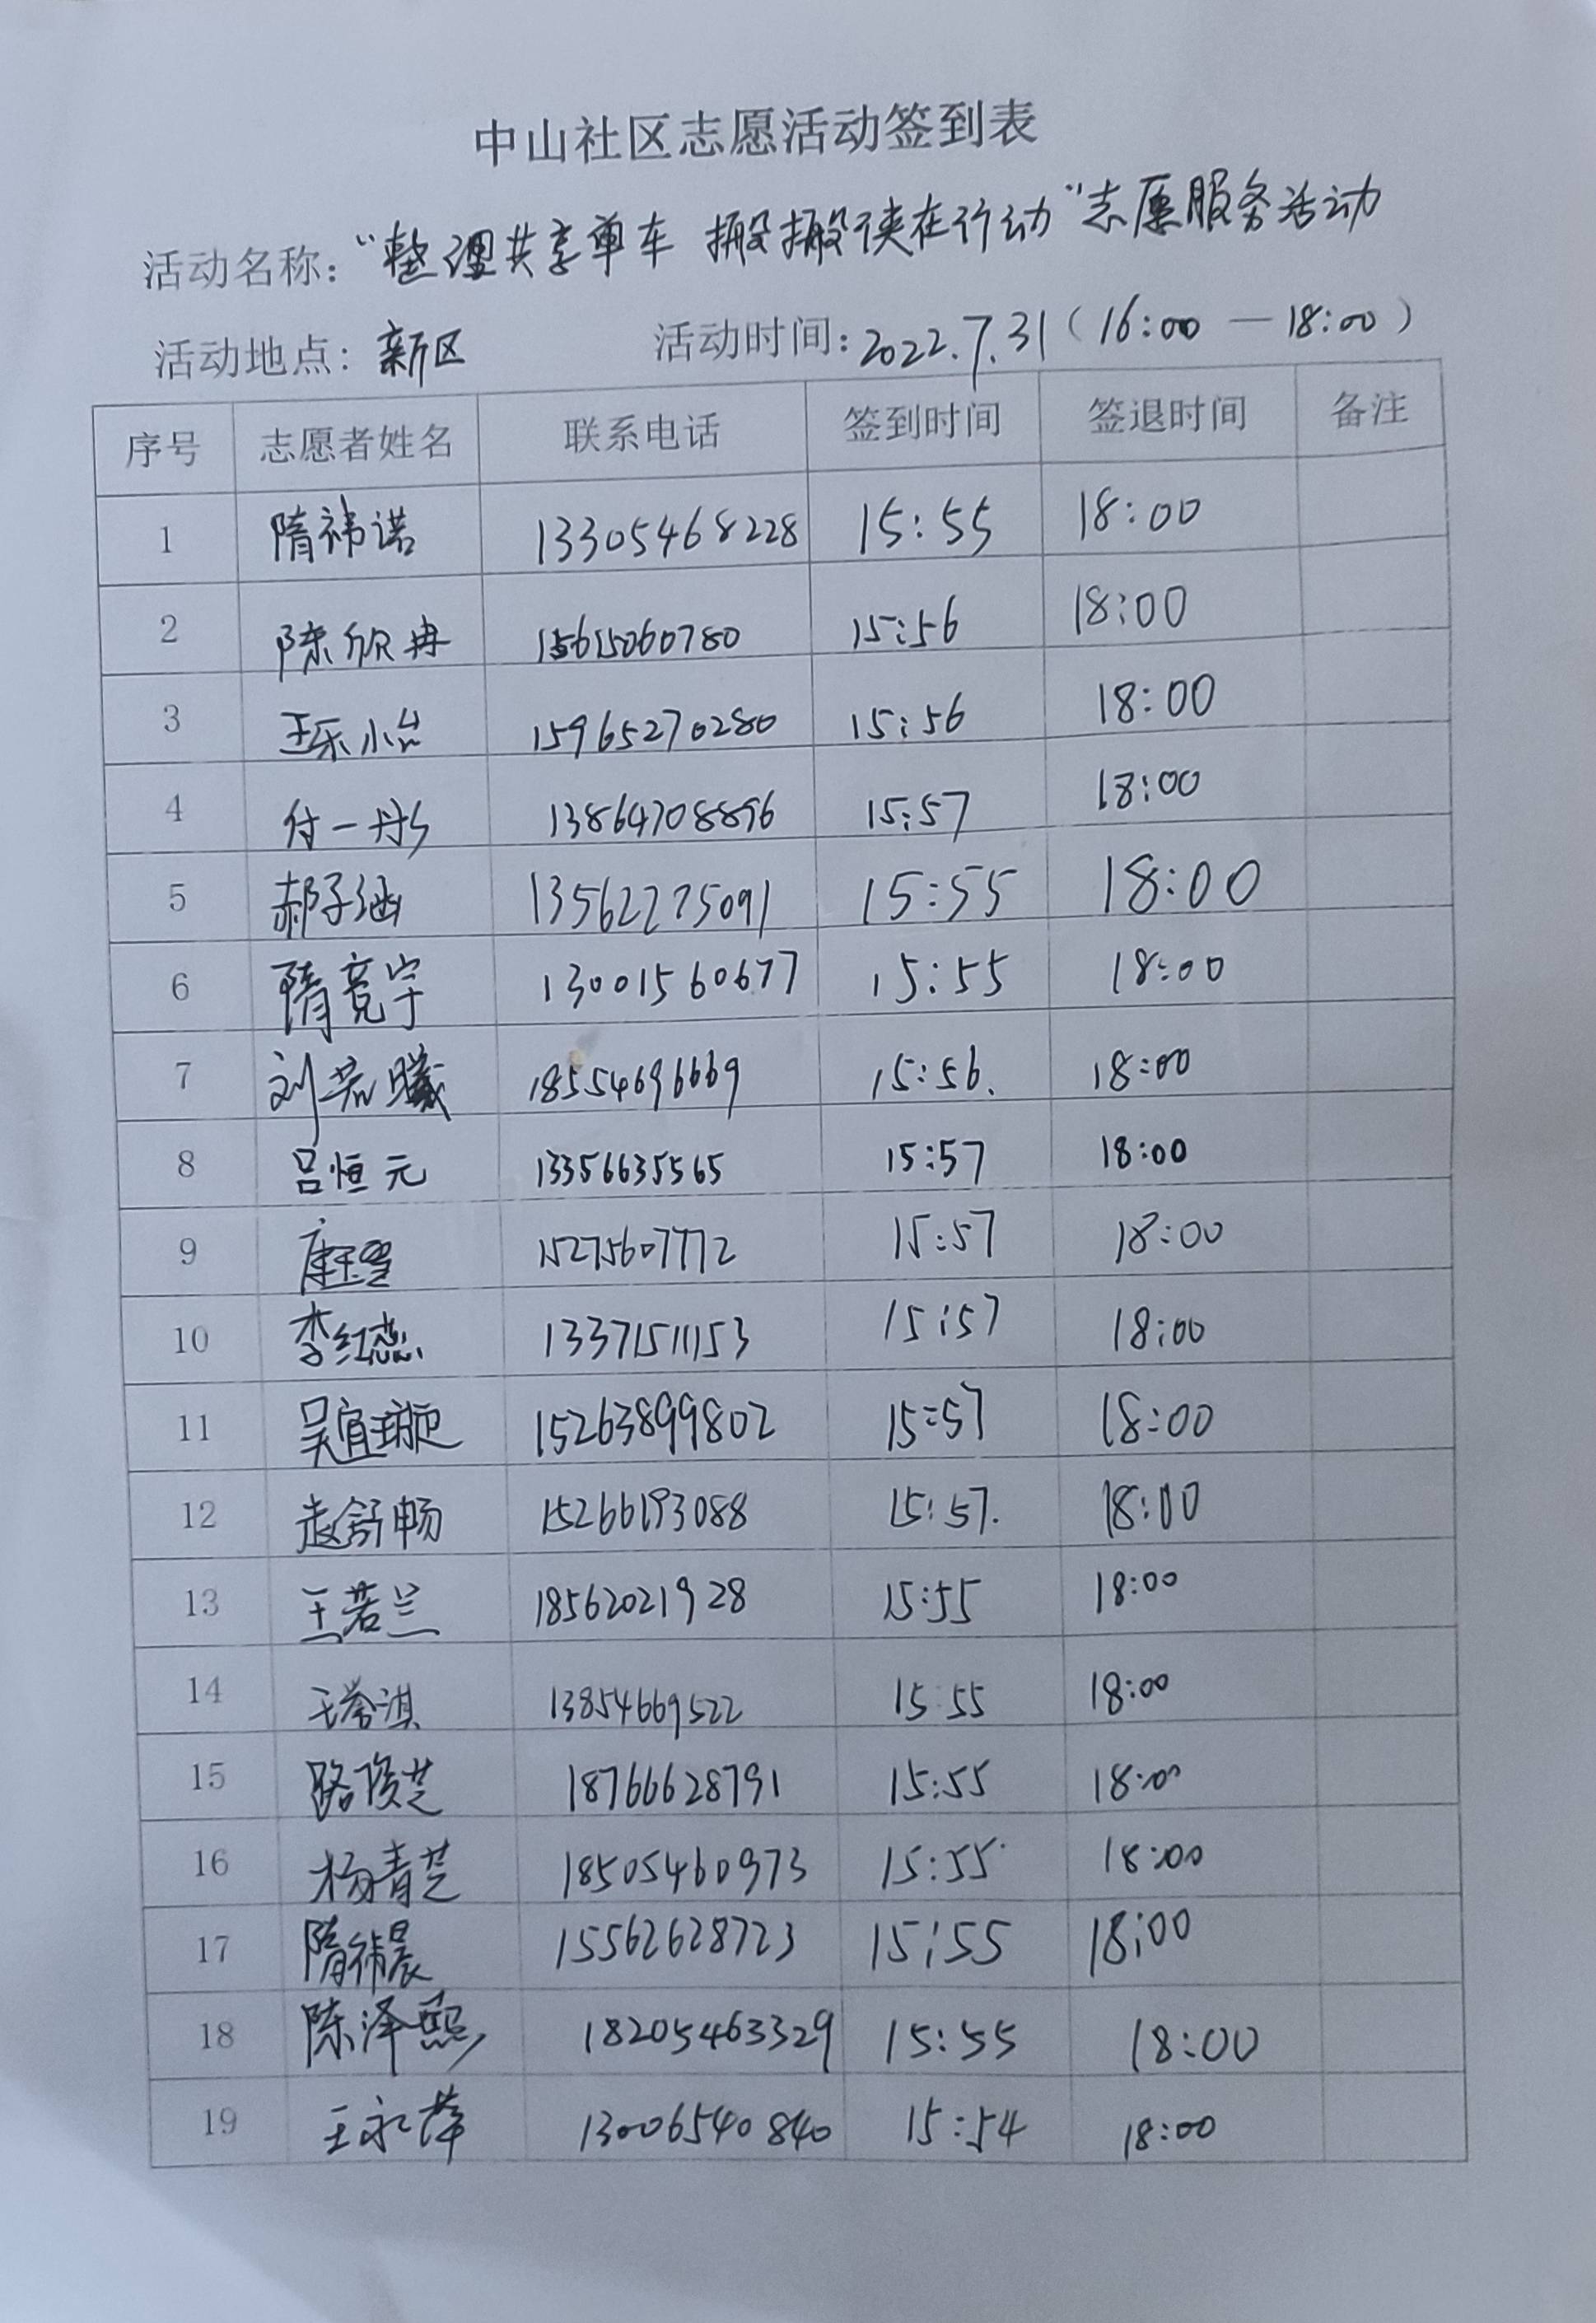 中山社区志愿活动签到表
活动名称：“整理共享单车 搬搬侠在行动”志愿服务活动
活动地点：新区 活动时间：2022.7.31（16:00—18:00）
序号 志愿者姓名 联系电话 签到时间 签退时间 备注
1 隋祎诺 13305468228 15:55 18:00
2 陈欣冉 15615060780 15:56 18:00
3 王乐小 15965270280 15:56 18:00
4 付一彤 13864708896 15:57 18:00
5 郝子涵 13562275091 15:55 18:00
6 隋竟宇 13001560677 15:55 18:00
7 刘若曦 18554696669 15:56. 18:00
8 吕恒元 13356635565 15:57 18:00
9 15275607772 15:57 18:00
10 李红蕊 13371511153 15:57 18:00
11 吴宜璇 15263899802 15:57 18:00
12 赵舒畅 15266193088 15:57. 18:00
13 王若兰 18562021928 15:55 18:00
14 13854669522 15:55 18:00
15 路俊芝 18766628791 15:55 18:00
16 杨青芝 18505460973 15:55 18:00
17 隋祎晨 15562628723 15:55 18:00
18 陈泽熙 18205463329 15:55 18:00
19 王永萍 13006540840 15:54 18:00